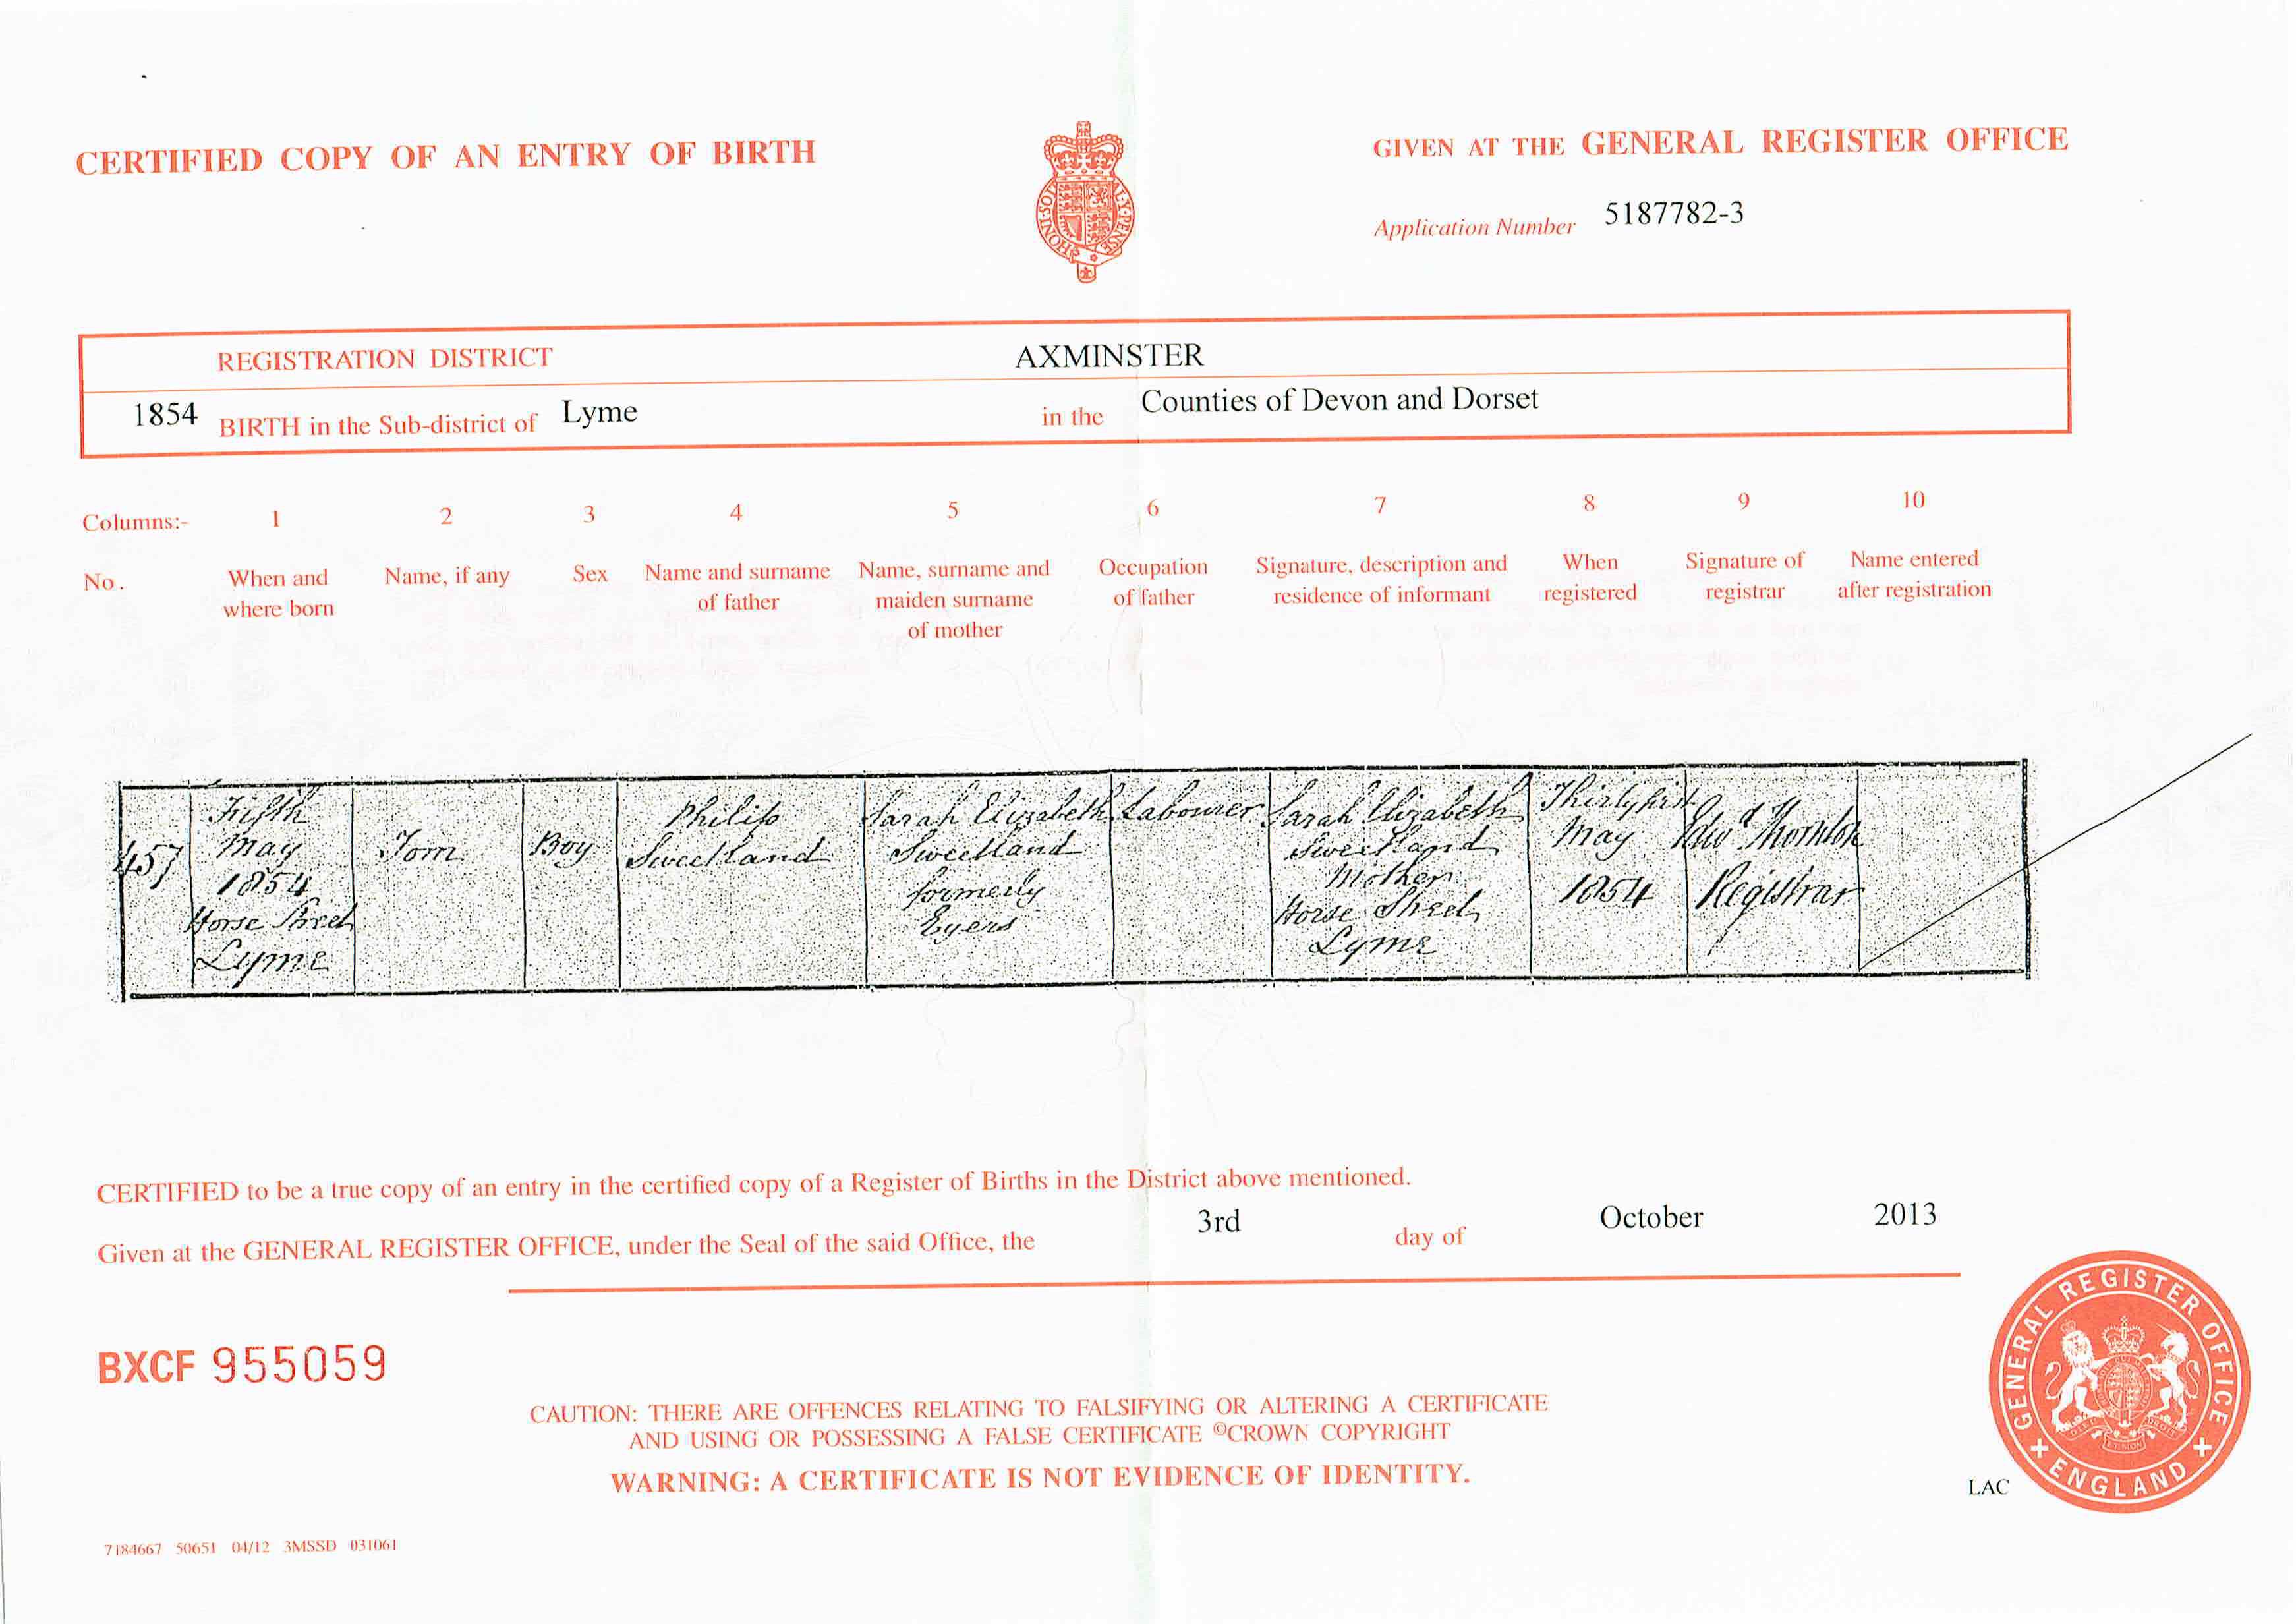 CERTIFIED COPY OF AN ENTRY OF BIRTH
GIVEN AT THE GENERAL REGISTER OFFICE
Application Number 5187782-3
REGISTRATION DISTRICT AXMINSTER
1854 BIRTH in the Sub-district of Lyme in the Counties of Devon and Dorset
Columns:- 1 2 3 4 5 6 7 8 9 10
No.
When and
where born
Name, if any
Sex
Name and surname
of father
Name, surname and
maiden surname
of mother
Occupation
of father
Signature, description and
residence of informant
When
registered
Signature of
registrar
Name entered
after registration
457
Fifth
May
1854
Horse Street
Lyme
Tom
Boy
Philip
Sweetland
Sarah Elizabeth
Sweetland
formerly
Eyers
Labourer
Sarah Elizabeth
Sweetland
Mother
Horse Street
Lyme
Thirty first
May
1854
Edwd Thornton
Registrar
CERTIFIED to be a true copy of an entry in the certified copy of a Register of Births in the District above mentioned.
Given at the GENERAL REGISTER OFFICE, under the Seal of the said Office, the 3rd day of October 2013
BXCF 955059
CAUTION: THERE ARE OFFENCES RELATING TO FALSIFYING OR ALTERING A CERTIFICATE
AND USING OR POSSESSING A FALSE CERTIFICATE ©CROWN COPYRIGHT
WARNING: A CERTIFICATE IS NOT EVIDENCE OF IDENTITY.
LAC
GENERAL REGISTER OFFICE
ENGLAND
7184667 50651 04/12 3MSSD 031061